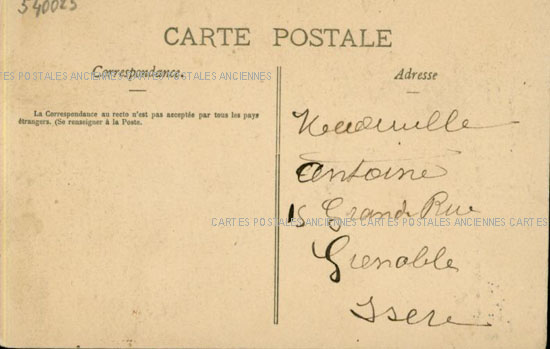 540025
CARTE POSTALE
Correspondance.
Adresse
CARTES POSTALES ANCIENNES CARTES POSTALES ANCIENNES
CARTES POSTALES ANCIENNES
La Correspondance au recto n'est pas acceptée par tous les pays
étrangers. (Se renseigner à la Poste.
Antoine
15 Grande Rue
CARTES POSTALES ANCIENNES CARTES POSTALES ANCIENNES CARTES
Grenoble
Isere